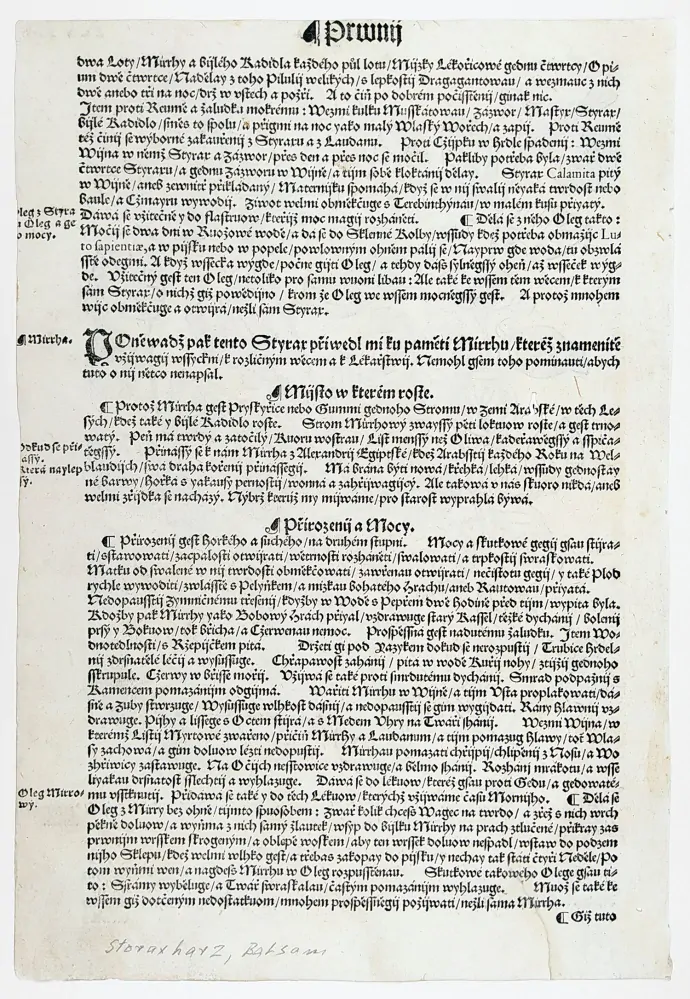 ¶ Prwnij
dwa Loty/Mirrhy a bijlého Kadidla každého půl lotu/Mijzky Lékořicowé gednu čtwrtcy/Opi-
um dwě čtwrtce/Naděláy z toho Pilulij welikých/s lepkostij Dragagantowau/a wezmauc z nich
dwě anebo tři na noc/drž w vstech a požři. A to čiň po dobrém počisstěnij/ginak nic.
Item proti Reumě a žaludku mokrému: Wezmi kulku Musskátowau/Zázwor/Mastyx/Styrax/
bijlé Kadidlo/směs to spolu/a přigmi na noc yako malý Wlaský Wořech/a zapij. Proti Reumě
též činij se wýborné zakauřenij z Styraxu a z Laudanu. Proti Cžijpku w hrdle spadenij: Wezmi
Wijna w němž Styrax a Zázwor/přes den a přes noc se močil. Pakliby potřeba byla/zwař dwě
čtwrtce Styraxu/a gednu Zázworu w Wijně/a tijm sobě kloktánij děláy. Styrax Calamita pitý
w Wijně/aneb zewnitř přikládaný/Materníjku spomáhá/když se w nij swalij něyaká twrdost nebo
baule/a Cžmayru wywodij. Žiwot welmi obměkčuge s Terebinthýnau/w malém kusu přiyatý.
Dáwá se vžitečně y do flastruow/kteřijž moc magij rozháněti. ¶ Dělá se z něho Oleg takto:
Močij se dwa dni w Ruožowé wodě/a dá se do Sklenné Kolby/wssudy kdež potřeba obmažijc Lu-
to sapientiæ,a w pijsku nebo w popele/powlowným ohněm pálij se/Nayprw gde woda/tu obzwlá
sstě odegmi. A když wssecka wygde/počne gijti Oleg/a tehdy dáss sylněgssý oheň/až wsseček wyg-
de. Vžitečný gest ten Oleg/netoliko pro samu wuoni libau: Ale také ke wssem těm wěcem/k kterým
sám Styrax/o nichž giž powědijno/krom že Oleg we wssem mocněgssý gest. A protož mnohem
wijc obměkčuge a otwijrá/nežli sám Styrax.
oleg z Styra
u Oleg a ge
o mocy.
¶ Mirrha.
POněwadž pak tento Styrax přiwedl mi ku paměti Mirrhu/kteréž znamenitě
vžijwagij wssyckni/k rozličným wěcem a k Lékařstwij. Nemohl gsem toho pominauti/abych
tuto o nij něčo nenapsal.
¶ Mijsto w kterém roste.
¶ Protož Mirrha gest Pryskyřice nebo Gummi gednoho Stromu/w Zemi Arabské/w těch Le-
sých/kdež také y bijlé Kadidlo roste. Strom Mirrhowý zwayssý pěti loktuow roste/a gest trno-
watý. Peň má twrdý a zatočilý/Kuoru wostrau/List menssý než Oliwa/kadeřawěgssý a sspiča-
těgssý. Přinássý se k nám Mirrha z Alexandrij Egiptské/kdež Arabsstij každého Roku na Wel-
blaudijch/swá drahá kořenij přinássegij. Má brána býti nowá/křehká/lehká/wssudy gednostay
né barwy/hořká s yakausy pernostij/wonná a zahřijwagijcý. Ale taková v nás skuoro nikdá/aneb
welmi zřijdka se nacházý. Nýbrž kteruž my mijwáme/pro starost wyprahlá býwá.
Odkud se při-
nássý.
Která naylep
ssý.
¶ Přirozenij a Mocy.
¶ Přirozenij gest horkého a suchého/na druhém stupni. Mocy a skutkowé gegij gsau stijra-
ti/sstawowati/zacpalosti otwijrati/wětrnosti rozháněti/swalowati/a trpkostij swrasskowati.
Matku od swalené w nij twrdosti obměkčowati/zawřenau otwijrati/nečistotu gegij/y také Plod
rychle wywoditi/zwlásstě s Pelyňkem/a mijzkau bohatého hrachu/aneb Rautowau/přiyatá.
Nedopausstij Zymničnému třesenij/kdyžby w Wodě s Pepřem dwě hodině před tijm/wypita byla.
Kdožby pak Mirrhy yako Bobowý hrách přiyal/vzdrawuge starý Kassel/těžké dýchánij/bolenij
prsý y Bokuow/tok břicha/a Cžerwenau nemoc. Prospěssná gest nadutému žaludku. Item Wo-
dnotedlnosti/s Rzepijčkem pitá. Držeti gi pod Yazykem dokud se nerozpustij/Trubice hrdel-
nij zdrsnatělé léčij a wysussuge. Chřapawost zahánij/pitá w wodě Kuřij nohy/ztijžij gednoho
sskrupule. Cžerwy w břisse mořij. Vžijwá se také proti smrdutému dýchánij. Smrad podpažnij s
Kamencem pomazáním odgijmá. Wařiti Mirrhu w Wijně/a tijm Vsta proplakowati/dá-
sně a Zuby stwrzuge/Wysussuge wlhkost dásnij/a nedopausstij se gim wygijdati. Rány hlawnij vz-
drawuge. Pijhy a lissege s Octem stijrá/a s Medem Vhry na Twáři shánij. Wezmi Wijna/w
kterémž Listij Myrtowé zwařeno/přičiň Mirrhy a Laudanum/a tijm pomazug hlawy/toť Wla-
sy zachowá/a gim doluow lézti nedopustij. Mirrhau pomazati chřijpij/chlijpěnij z Nosu/a Wo
zhřiwicy zastawuge. Na Očijch nesstowice vzdrawuge/a bělmo shánij. Rozhánij mrákotu/a wsse
liyakau drsnatost sslechtij a wyhlazuge. Dáwá se do lékuow/kteréž gsau proti Gedu/a gedowaté-
mu vsstknutij. Přidáwá se také y do těch Lékuow/kterýchž vžijwáme času Mornijho. ¶ Dělá se
Oleg z Mirry bez ohně/tijmto spuosobem: Zwař kolik chcess Wagec na twrdo/a zřež s nich wrch
pěkně doluow/a wyňma z nich samý žlautek/wsyp do bijlku Mirrhy na prach ztlučené/přikray zas
prwnijm wrsskem skrogeným/a oblepě woskem/aby ten wrssek doluow nespadl/wstaw do podzem
nijho Sklepu/kdež welmi wlhko gest/a třebas zakopay do pijsku/y nechay tak státi čtyři Neděle/Po
tom wyňmi wen/a nagdess Mirrhu w Oleg rozpusstěnau. Skutkowé takowého Olege gsau ti-
to: Sframy wyběluge/a Twář swraskalau/častým pomazánijm wyhlazuge. Muož se také ke
wssem giž dotčeným nedostatkuom/mnohem prospěssněgij požijwati/nežli sama Mirrha.
Oleg Mirro-
wý.
¶ Giž tuto
Storaxharz, Balsam